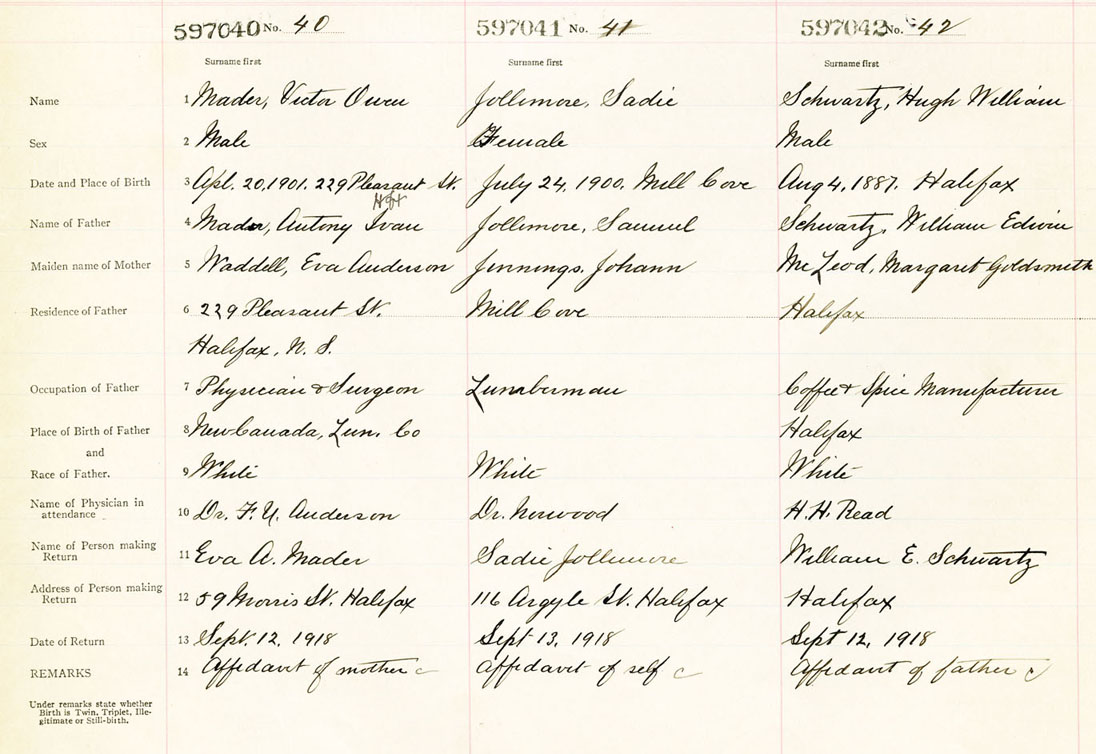 597040 No. 40 597041 No. 41 597042 No. 42
Surname first Surname first Surname first
Name 1 Mader, Victor Owen Jollimore, Sadie Schwartz, Hugh William
Sex 2 Male Female Male
Date and Place of Birth 3 Apl. 20, 1901. 229 Pleasant St. July 24, 1900. Mill Cove Aug 4, 1887. Halifax
Hfx
Name of Father 4 Mader, Antony Ivan Jollimore, Samuel Schwartz, William Edwin
Maiden name of Mother 5 Waddell, Eva Anderson Jennings, Johann McLeod, Margaret Goldsmith
Residence of Father 6 229 Pleasant St. Mill Cove Halifax
Halifax, N. S.
Occupation of Father 7 Physician & Surgeon Lumberman Coffee & Spice Manufacturer
Place of Birth of Father 8 New Canada, Lun. Co Halifax
and
Race of Father. 9 White White White
Name of Physician in
attendance 10 Dr. F. U. Anderson Dr. Norwood H. H. Read
Name of Person making
Return 11 Eva A. Mader Sadie Jollimore William E. Schwartz
Address of Person making
Return 12 59 Morris St. Halifax 116 Argyle St. Halifax Halifax
Date of Return 13 Sept. 12, 1918 Sept 13, 1918 Sept 12, 1918
REMARKS 14 Affidavit of mother c Affidavit of self c Affidavit of father c
Under remarks state whether
Birth is Twin, Triplet, Ille-
gitimate or Still-birth.